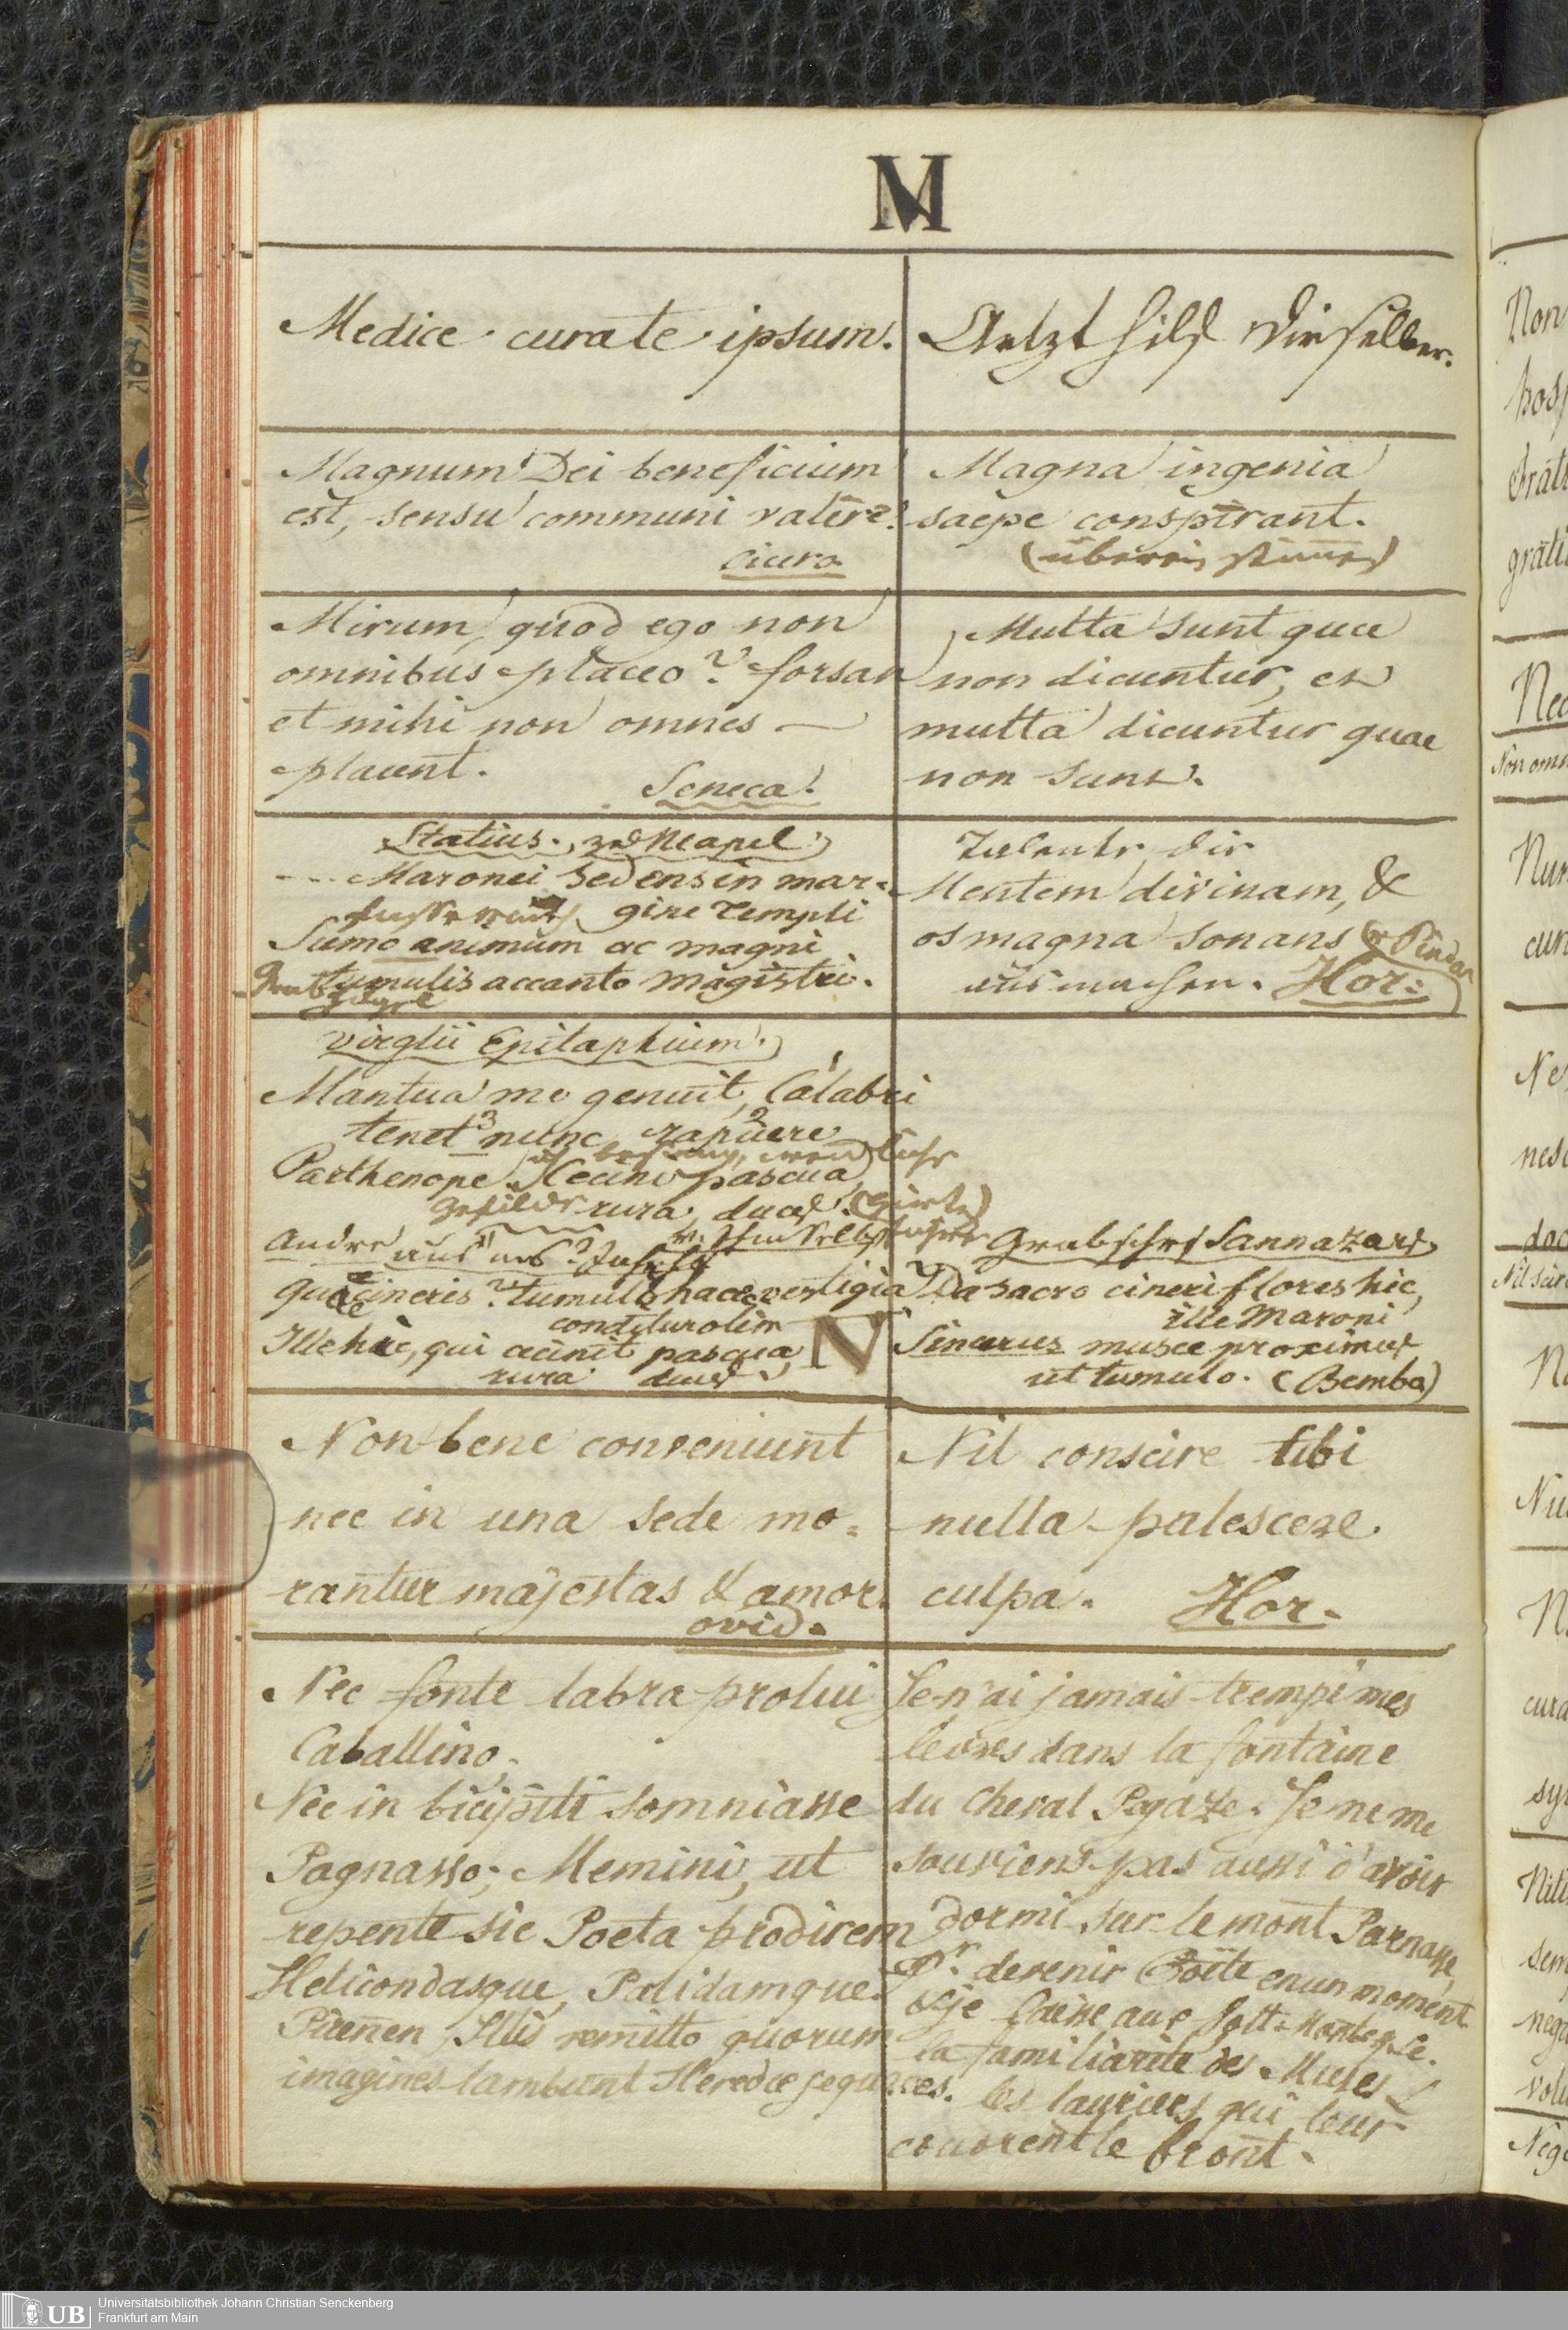 M
Medice curate ipsum.
Artzt hilf dir selber.
Magnum Dei beneficium
est, sensu communi valere.
Cicero
Magna ingenia
saepe conspirant.
Mirum, quod ego non
omnibus placeo? forsan
et mihi non omnes —
placent.
Seneca.
Multa sunt quae
non dicuntur, et
multa dicuntur quae
non sunt.
Statius. Neapel
--- Maronei sedens in mar-
gine Templi
Sumo animum ac magni
tumulis accanto magistri.
Talente die
Mentem divinam, &
os magna sonans Pindar
ausmachen. Hor:
virglii Epitaphium.
Mantua me genuit, Calabri
tenet 3 nunc rapuere 2
Parthenope. Cecini pascua
Gefilde rura, duces.
Andre
cineris tumulo haec vestigia
conditur olim
Ille hic, qui cecinit pascua,
rura duces.
Grabschrf Sannazars
Da sacro cineri flores hic,
ille Maroni
Sincerus musae proximus
ut tumulo. (Bembo)
N
Non bene conveniunt
nec in una sede mo-
rantur majestas & amor.
ovid.
Nil conscire tibi
nulla palescere
culpa. Hor.
Nec fonte labra prolui
Caballino,
Nec in bicipiti somniasse
Pagnasso; Memini, ut
repente sic Poeta prodirem
Helicondasque, Palidamque
Pirenen Illis remitto quorum
imagines lambunt Heredae sequaces.
Je n'ai jamais trempé mes
levres dans la fontaine
du Cheval Pegaze. Je ne me
souviens pas aussi d'avoir
dormi sur le mont Parnasse
pr. devenir Poëte en un moment
la familiarité des Muses
les lauriers qui leur
couvrent le front.
Non
Nec
Non omn
Nur
cur
Nes
nes
Nil scir
Nu
cura
Nil
sem
neg
volu
Neg
UB
Universitätsbibliothek Johann Christian Senckenberg
Frankfurt am Main